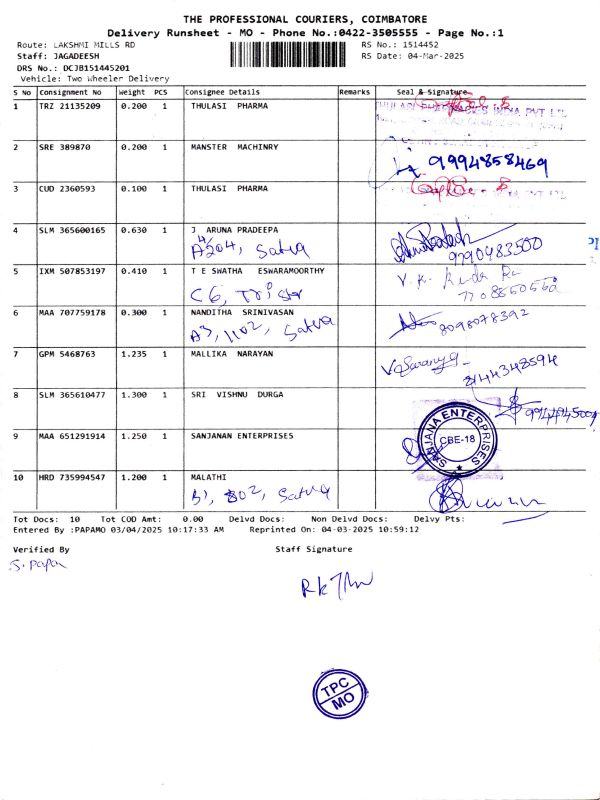 THE PROFESSIONAL COURIERS, COIMBATORE
Delivery Runsheet - MO - Phone No.:0422-3505555 - Page No.:1
Route: LAKSHMI MILLS RD RS No.: 1514452
Staff: JAGADEESH RS Date: 04-Mar-2025
DRS No.: DCJB151445201
Vehicle: Two Wheeler Delivery
S No Consignment No Weight PCS Consignee Details Remarks Seal & Signature
1 TRZ 21135209 0.200 1 THULASI PHARMA
2 SRE 389870 0.200 1 MANSTER MACHINRY
9994858469
3 CUD 2360593 0.100 1 THULASI PHARMA
4 SLM 365600165 0.630 1 J ARUNA PRADEEPA
A4 204, Satva 9790483500
5 IXM 507853197 0.410 1 T E SWATHA ESWARAMOORTHY
C6, Tristar 7708860560
6 MAA 707759178 0.300 1 NANDITHA SRINIVASAN
A3, 1102, Satva 8098078392
7 GPM 5468763 1.235 1 MALLIKA NARAYAN
8144348594
8 SLM 365610477 1.300 1 SRI VISHNU DURGA
9944945004
9 MAA 651291914 1.250 1 SANJANAN ENTERPRISES
SANJANA ENTERPRISES
CBE-18
10 HRD 735994547 1.200 1 MALATHI
B1, 802, Satva
Tot Docs: 10 Tot COD Amt: 0.00 Delvd Docs: Non Delvd Docs: Delvy Pts:
Entered By :PAPAMO 03/04/2025 10:17:33 AM Reprinted On: 04-03-2025 10:59:12
Verified By Staff Signature
S. Papa
TPC
MO